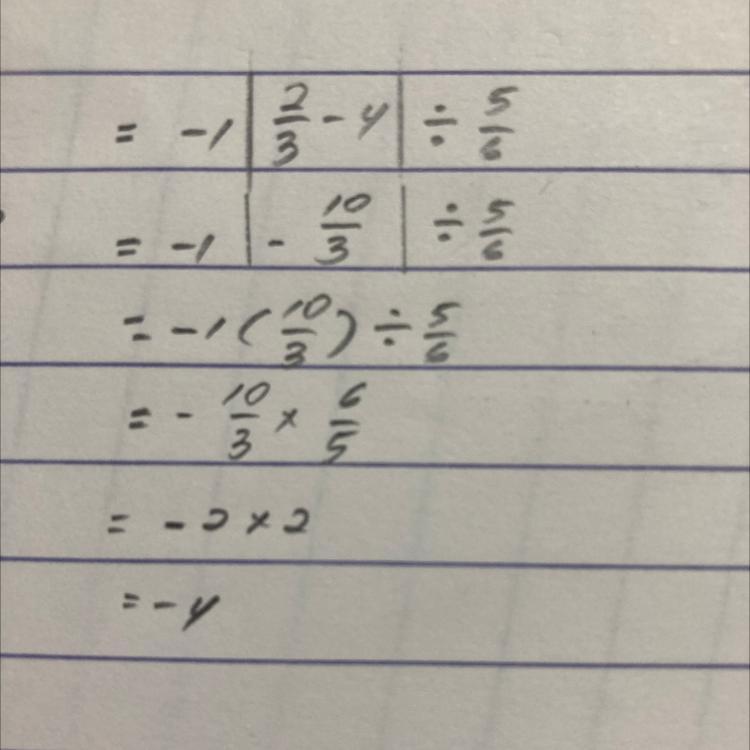 = -1 | 2/3 - 4 | ÷ 5/6
= -1 | - 10/3 | ÷ 5/6
= -1 ( 10/3 ) ÷ 5/6
= - 10/3 × 6/5
= - 2 × 2
= - 4